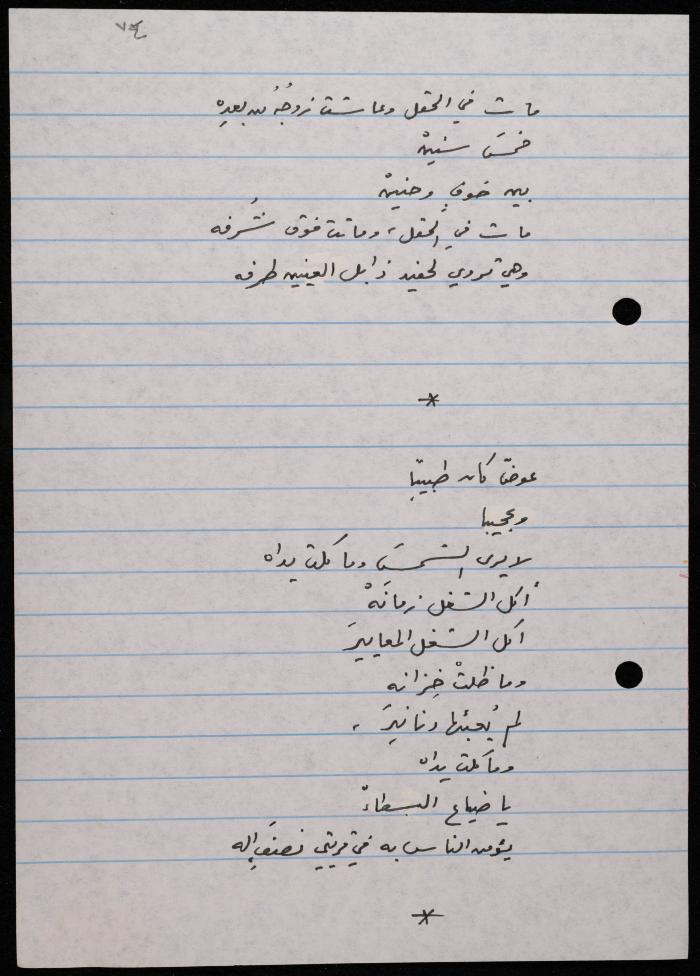 مات في الحقل وعاشت زوجُهُ من بعدِهِ
خمسَ سنينْ
بين خوفٍ وحنينْ
مات في الحقل، وماتت فوق شُرفه
وهي تروي لحفيد ذابل العينين طرفه
*
عوضٌ كان طبيبًا
وعجيبا
لا يرى الشمسَ وما كلت يداه
أكل الشغل زمانَهْ
أكل الشغل المعاييرَ
وما ظلتْ خِزانه
لم يُعبئها دنانيرَ ،
وما كلت يداه
يا ضياع البسطاءْ
يؤمن الناس به في قريتي نصفَ إله
*